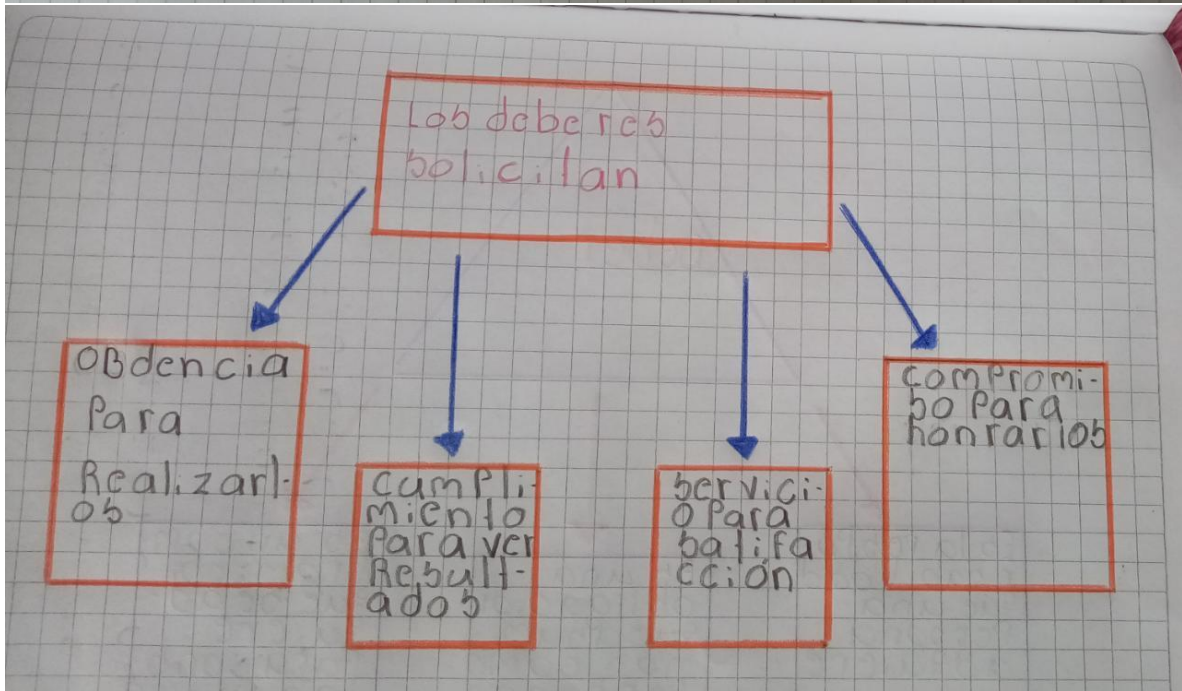 Los deberes
solicitan
OBdencia
Para
Realizarl-
os
cumpli-
miento
Para ver
Result-
ados
servici-
o Para
satifa
cción
compromi-
so Para
honrarlos